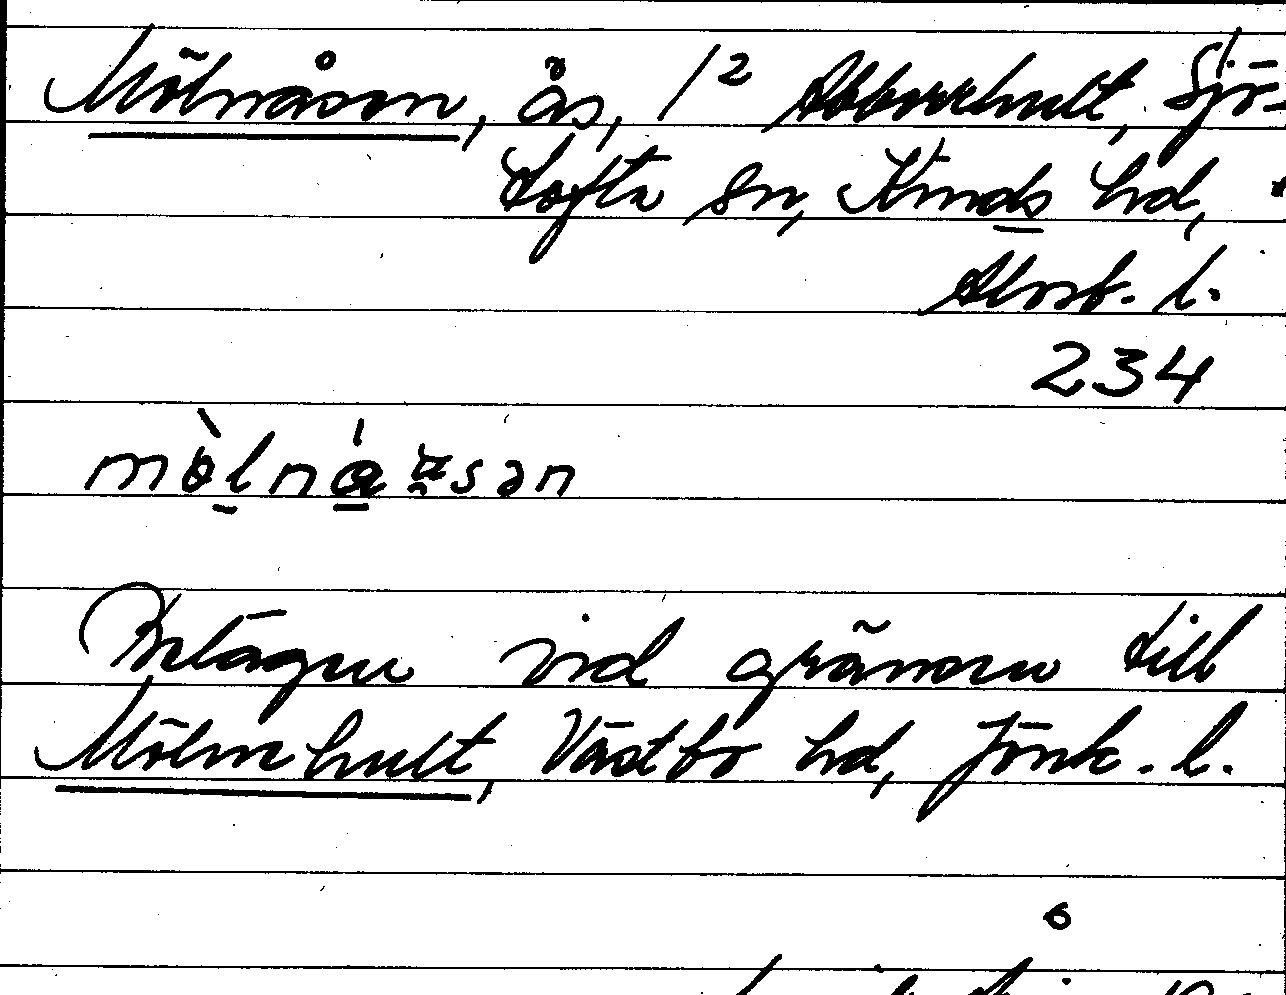 Mölnåsen, ås, 1/2 Abborrhult, Sjö-
tofta sn, Kinds hd,
Älvsb. l.
234
Belägen vid gränsen till
Mölnehult, Västbo hd, Jönk. l.